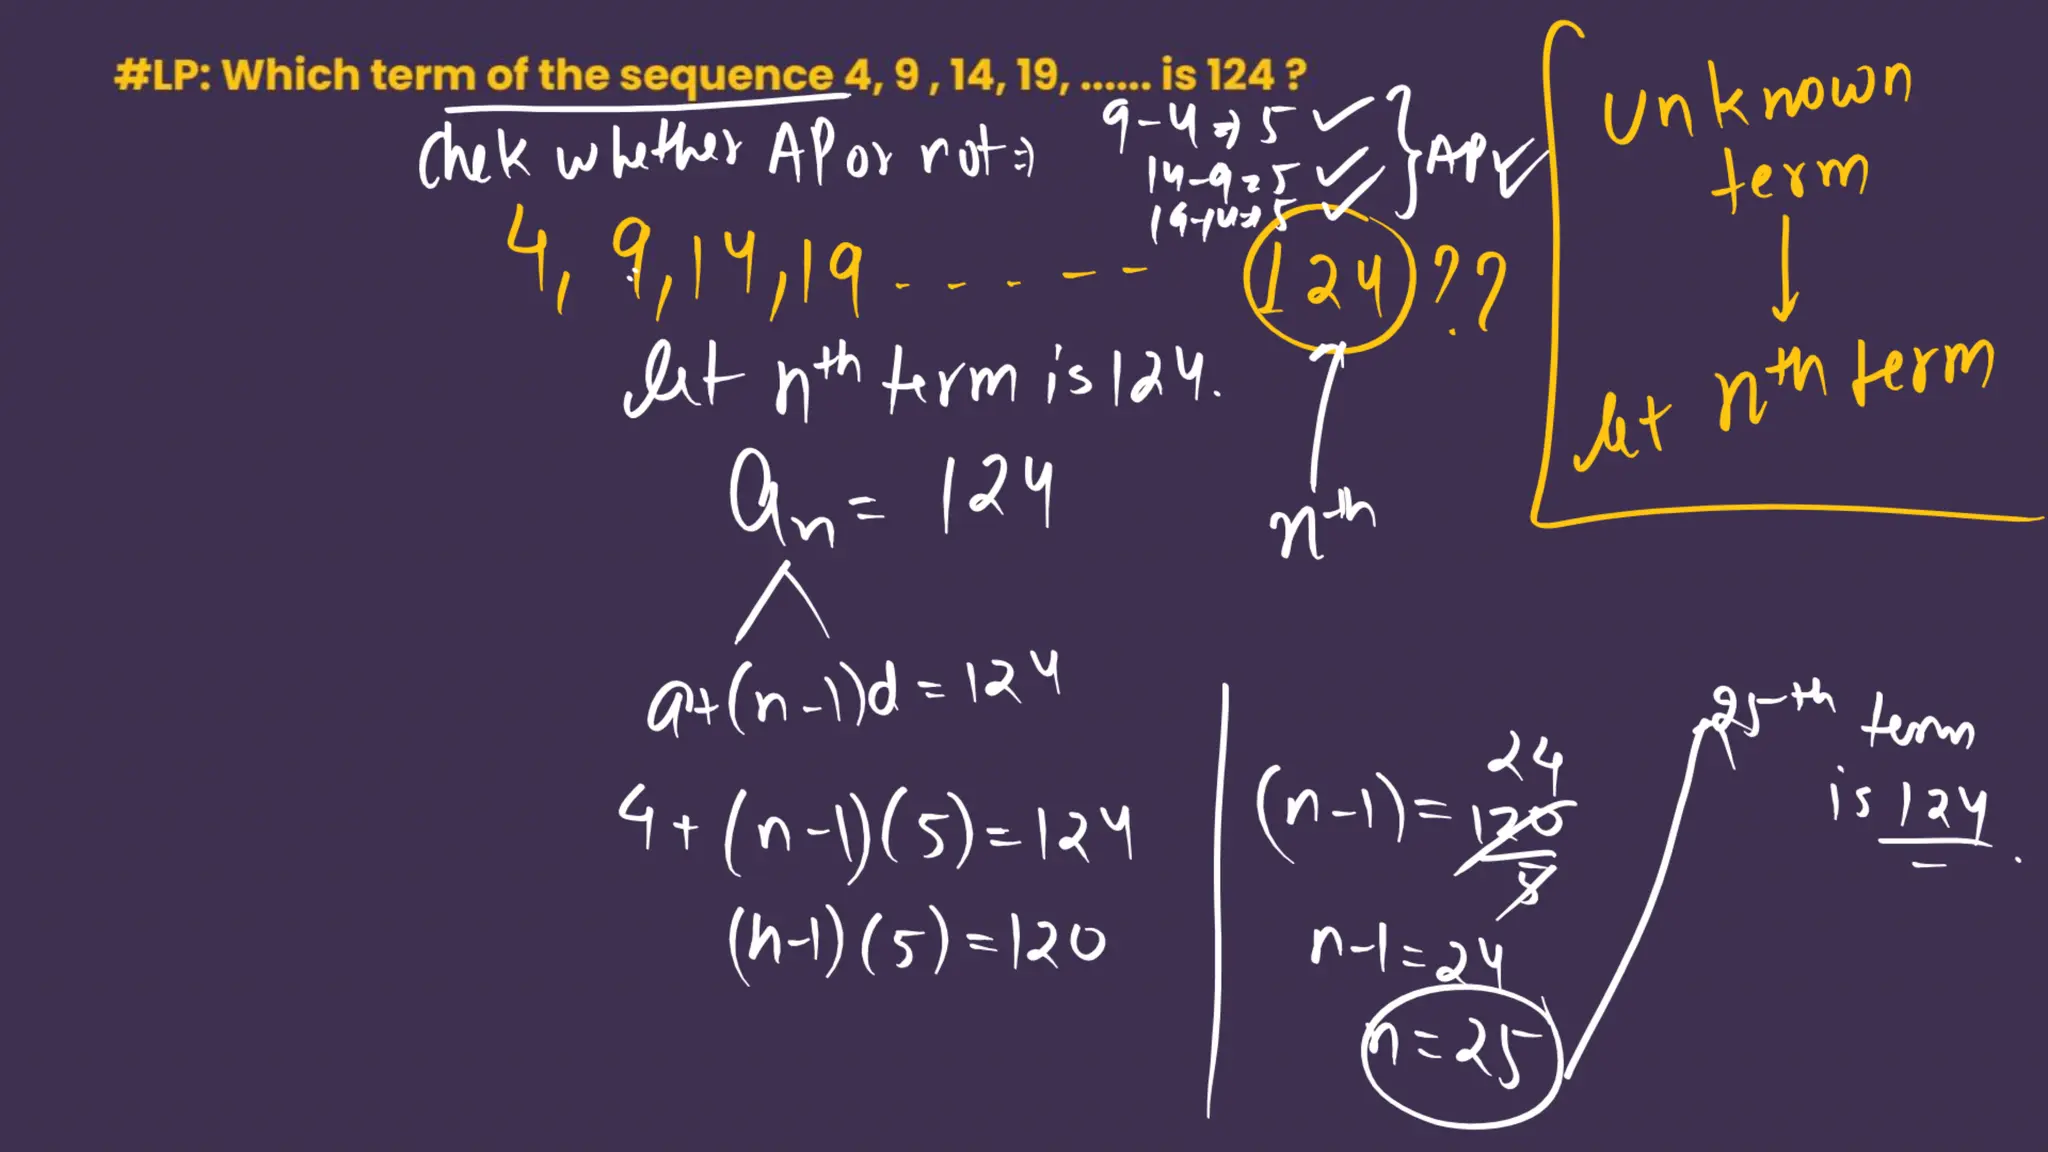 #LP: Which term of the sequence 4, 9 , 14, 19, ...... is 124 ?
Chek whether AP or not ⇒
9-4⇒5 ✓
14-9=5 ✓
19-14⇒5 ✓
} AP ✓
4, 9, 14, 19 . . . . - - 124 ??
let nth term is 124.
an = 124
nth
a+(n-1)d=124
4+(n-1)(5)=124
(n-1)(5)=120
(n-1)=120/5 24
n-1=24
n=25
25th term
is 124.
Unknown
term
↓
let nth term